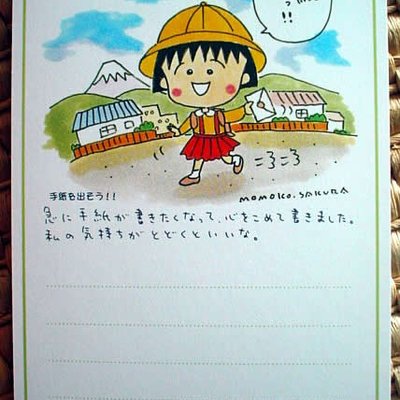 っ
!!
ころころ
MOMOKO.SAKURA
手紙を出そう!!
急に手紙が書きたくなって、心をこめて書きました。
私の気持ちがとどくといいな。